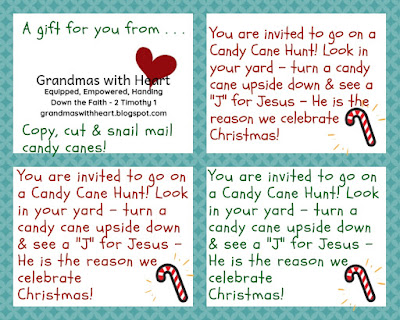 A gift for you from . . .
Grandmas with Heart
Equipped, Empowered, Handing
Down the Faith - 2 Timothy 1
grandmaswithheart.blogspot.com
Copy, cut & snail mail
candy canes!
You are invited to go on a
Candy Cane Hunt! Look in
your yard - turn a candy
cane upside down & see a
"J" for Jesus - He is the
reason we celebrate
Christmas!
You are invited to go on
a Candy Cane Hunt! Look
in your yard - turn a
candy cane upside down
& see a "J" for Jesus -
He is the reason we
celebrate
Christmas!
You are invited to go on
a Candy Cane Hunt! Look
in your yard - turn a
candy cane upside down
& see a "J" for Jesus -
He is the reason we
celebrate
Christmas!